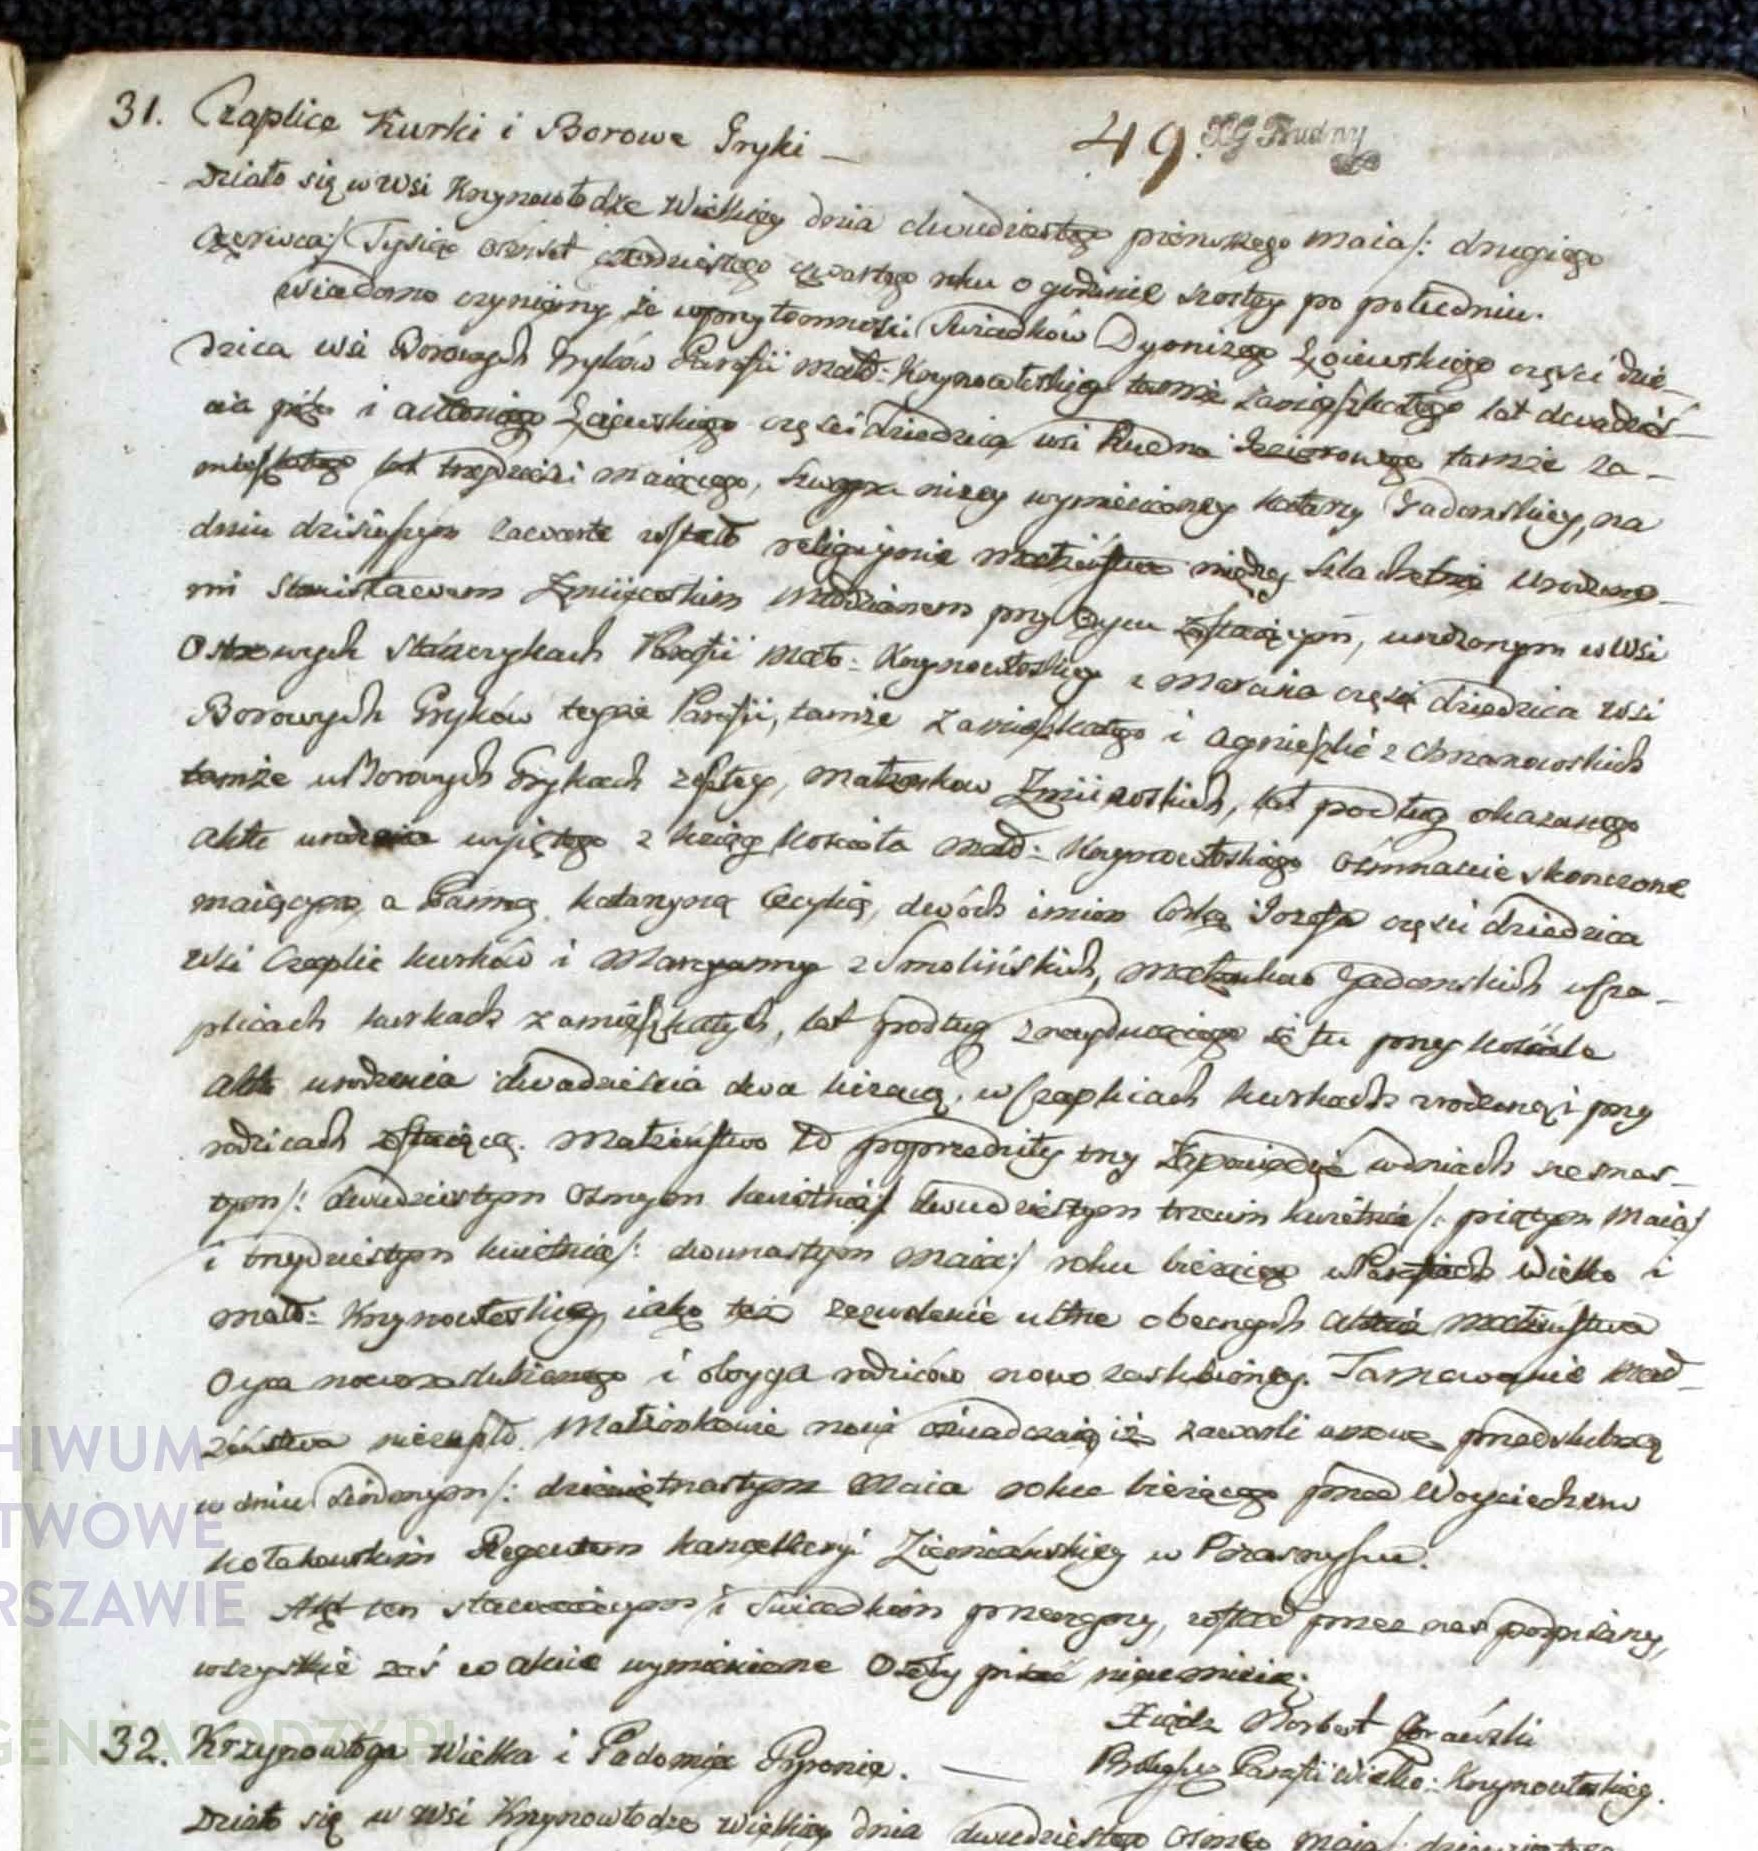 31. Czaplice Kurki i Borowe Gryki —
49. XG Trudny
Działo się w Wsi Krzynowłodze Wielkiey dnia dwudziestego pierwszego Maia/: drugiego
Czerwca/ Tysiąc Osmset czterdziestego czwartego roku o godzinie szostey po południu.
Wiadomo czyniemy, że w przytomności Swiadków Dyonizego Łaiewskiego części dzie-
dzica wsi Borowych Gryków Parafii Mało: Krzynowłoskiey tamże zamięszkałego lat dwadzieś-
cia pięć i Antoniego Łaiewskiego części dziedzica wsi Rudna Jeziorowego tamże za-
mięszkałego lat trzydzieści maiącego, szwagra niżey wymienioney Katarzyny Gadomskiey, na
dniu dzisieyszym zawarte zostało religijnie małżeństwo między Szlachetnie Urodzony-
mi Stanisławem Żmiiewskim Młodzianem przy Oycu zostaiącym, urodzonym w Wsi
Ostrowych Stańczykach Parafii Mało: Krzynowłoskiey z Marcina części dziedzica Wsi
Borowych Gryków teyże Parafii, tamże zamięszkałego i Agnieszki z Chrzanowskich
tamże w Borowych Grykach zeszłey, Małżonków Żmiiewskich, lat podług okazanego
aktu urodzenia wyiętego z ksiąg Kościoła Mało: Krzynowłoskiego Osmnaście skonczone
maiącym, a Panną Katarzyną Cecylią, dwóch imion Córką Jozefa części dziedzica
Wsi Czaplic Kurków i Maryanny z Smolińskich, małżonków Gadomskich w Cza-
plicach Kurkach zamięszkałych, lat podług znayduiącego się tu przy kościele
aktu urodzenia dwadzieścia dwa liczącą, w Czaplicach Kurkach urodzoną i przy
rodzicach zostaiącą. Małżeństwo to poprzedziły trzy Zapowiedzie w dniach szesnas-
tym/: dwudziestym Osmym kwietnia/ dwudziestym trzecim kwietnia/: piątym Maia/
i trzydziestym kwietnia/: dwunastym Maia:/ roku bieżącego w Parafiach Wielko i
Mało: Krzynowłoskiey, iako też zezwolenie ustne obecnych aktowi małżeństwa
Oyca nowozaslubionego i oboyga rodziców nowo zaslubioney. Tamowanie mał-
żeństwa niezaszło. Małżonkowie nowi oświadczaią, iż zawarli umowę przedslubną
w dniu siódmym/: dziewiętnastym Maia roku bieżącego przed Woyciechem
Kołakowskim Regentem kancellaryi Ziemiańskiey w Przasnyszu.
Akt ten stawaiącym i Swiadkom przeczytany, został przez nas podpisany,
wszystkie zaś w akcie wymienione Osoby pisać nieumieią.
Xiądz Norbert
Proboszcz Parafii Wielko: Krzynowłoskiey.
32. Krzynowłoga Wielka i Gadomiec Pyronie. —
Działo się w Wsi Krzynowłodze Wielkiey dnia dwudziestego Osmego Maia/:
HIWUM
TWOWE
RSZAWIE
GENEALODZY.PL